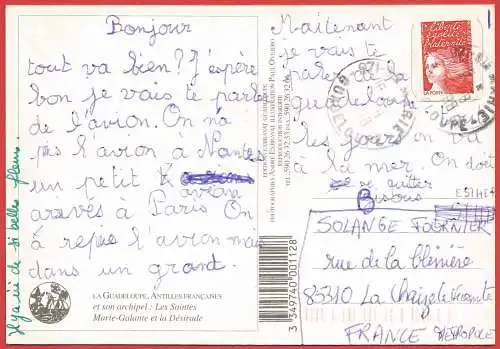 Bonjour
tout va bien? J'espère
bon je vais te parler
de l'avion. On n'a
pris l'avion à Nantes
un petit avion
arrivés à Paris On
à repris l'avion mais
dans un grand.
Il y a ici de si belles fleurs.
LA GUADELOUPE, ANTILLES FRANÇAISES
et son archipel : Les Saintes
Marie-Galante et la Désirade
3 549740 001128
Maintenant
je vais te
parler de la
guadeloupe
les jours on va
à la mer. On doit
se quitter
Bisous
LA POSTE
SOLANGE FOURNIER
rue de la blénière
85310 La Chaize le Vicomte
FRANCE METROPOLE